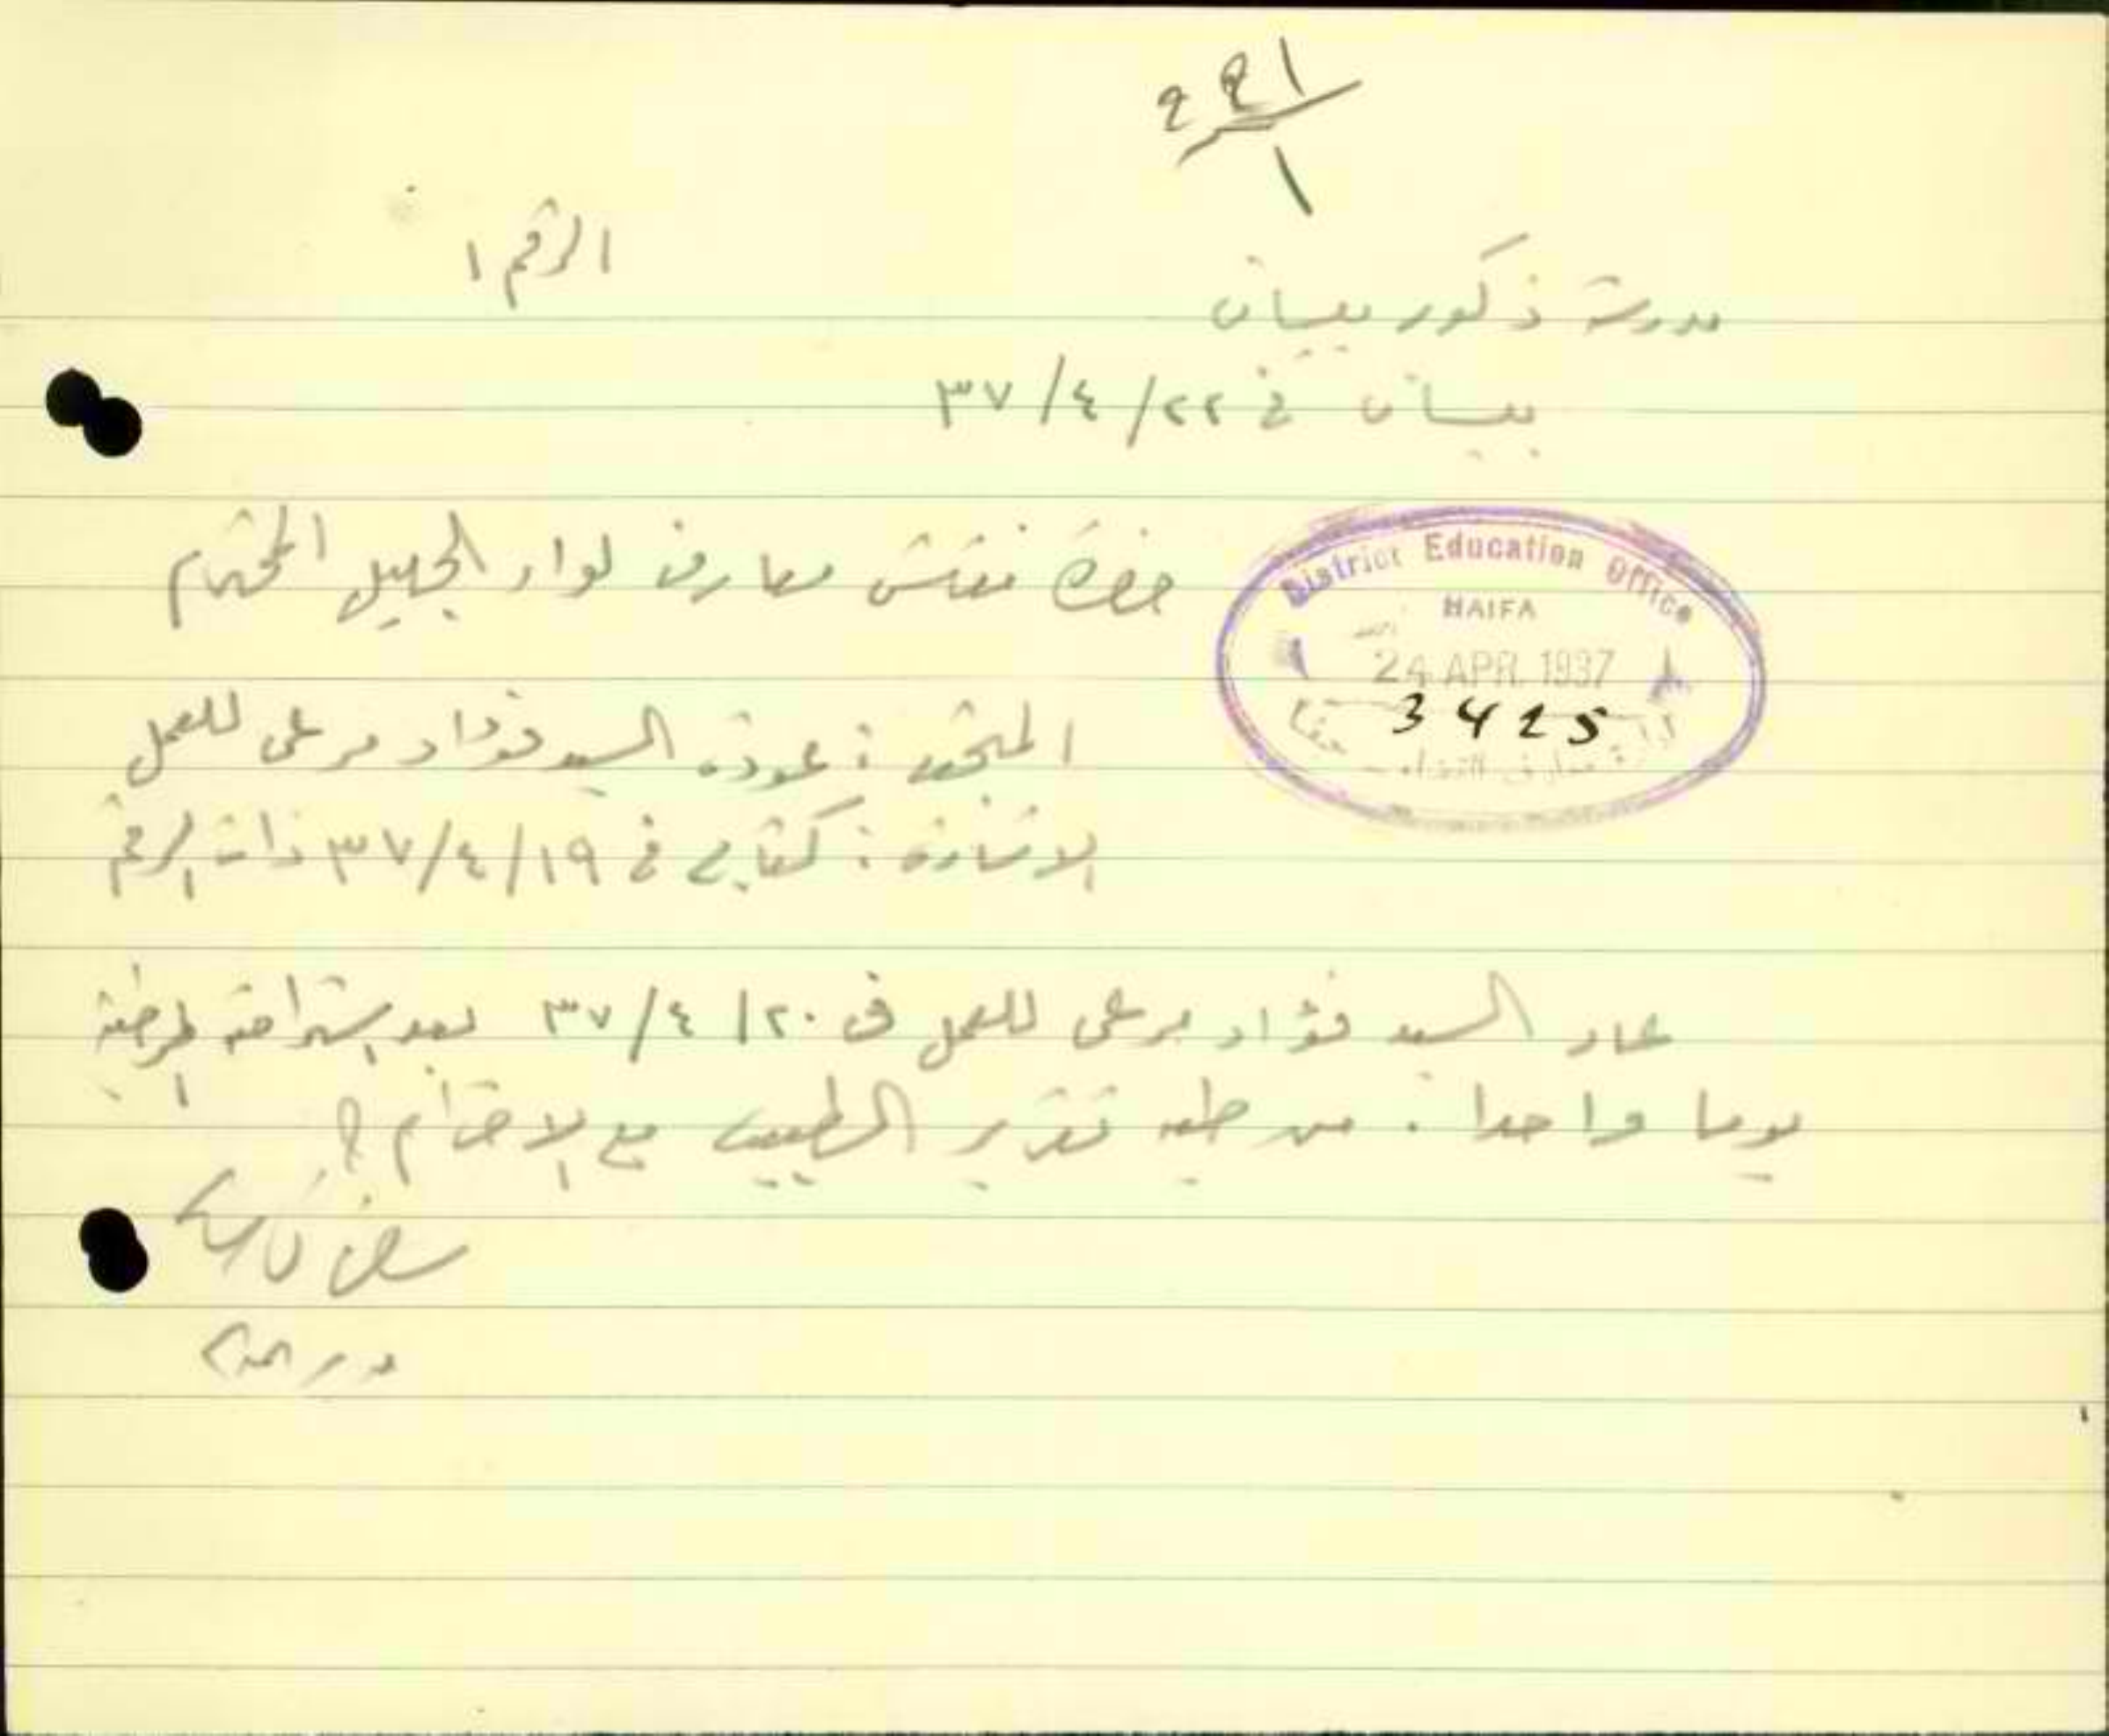 الرقم ١
مدرسة ذكور بيسان
بيسان في ٢٢/٤/٣٧
حضرة مفتش معارف لواء الجليل المحترم
District Education Office
HAIFA
24 APR. 1937
3425
المبحث : عودة السيد فؤاد مرعي للعمل
الاشارة : كتابي في ١٩/٤/٣٧ ذات الرقم
عاد السيد فؤاد مرعي للعمل في ٢٠/٤/٣٧ بعد استراحته المرضية
يوما واحدا . من طيه تقرير الطبيب مع الاحترام
مدير المدرسة